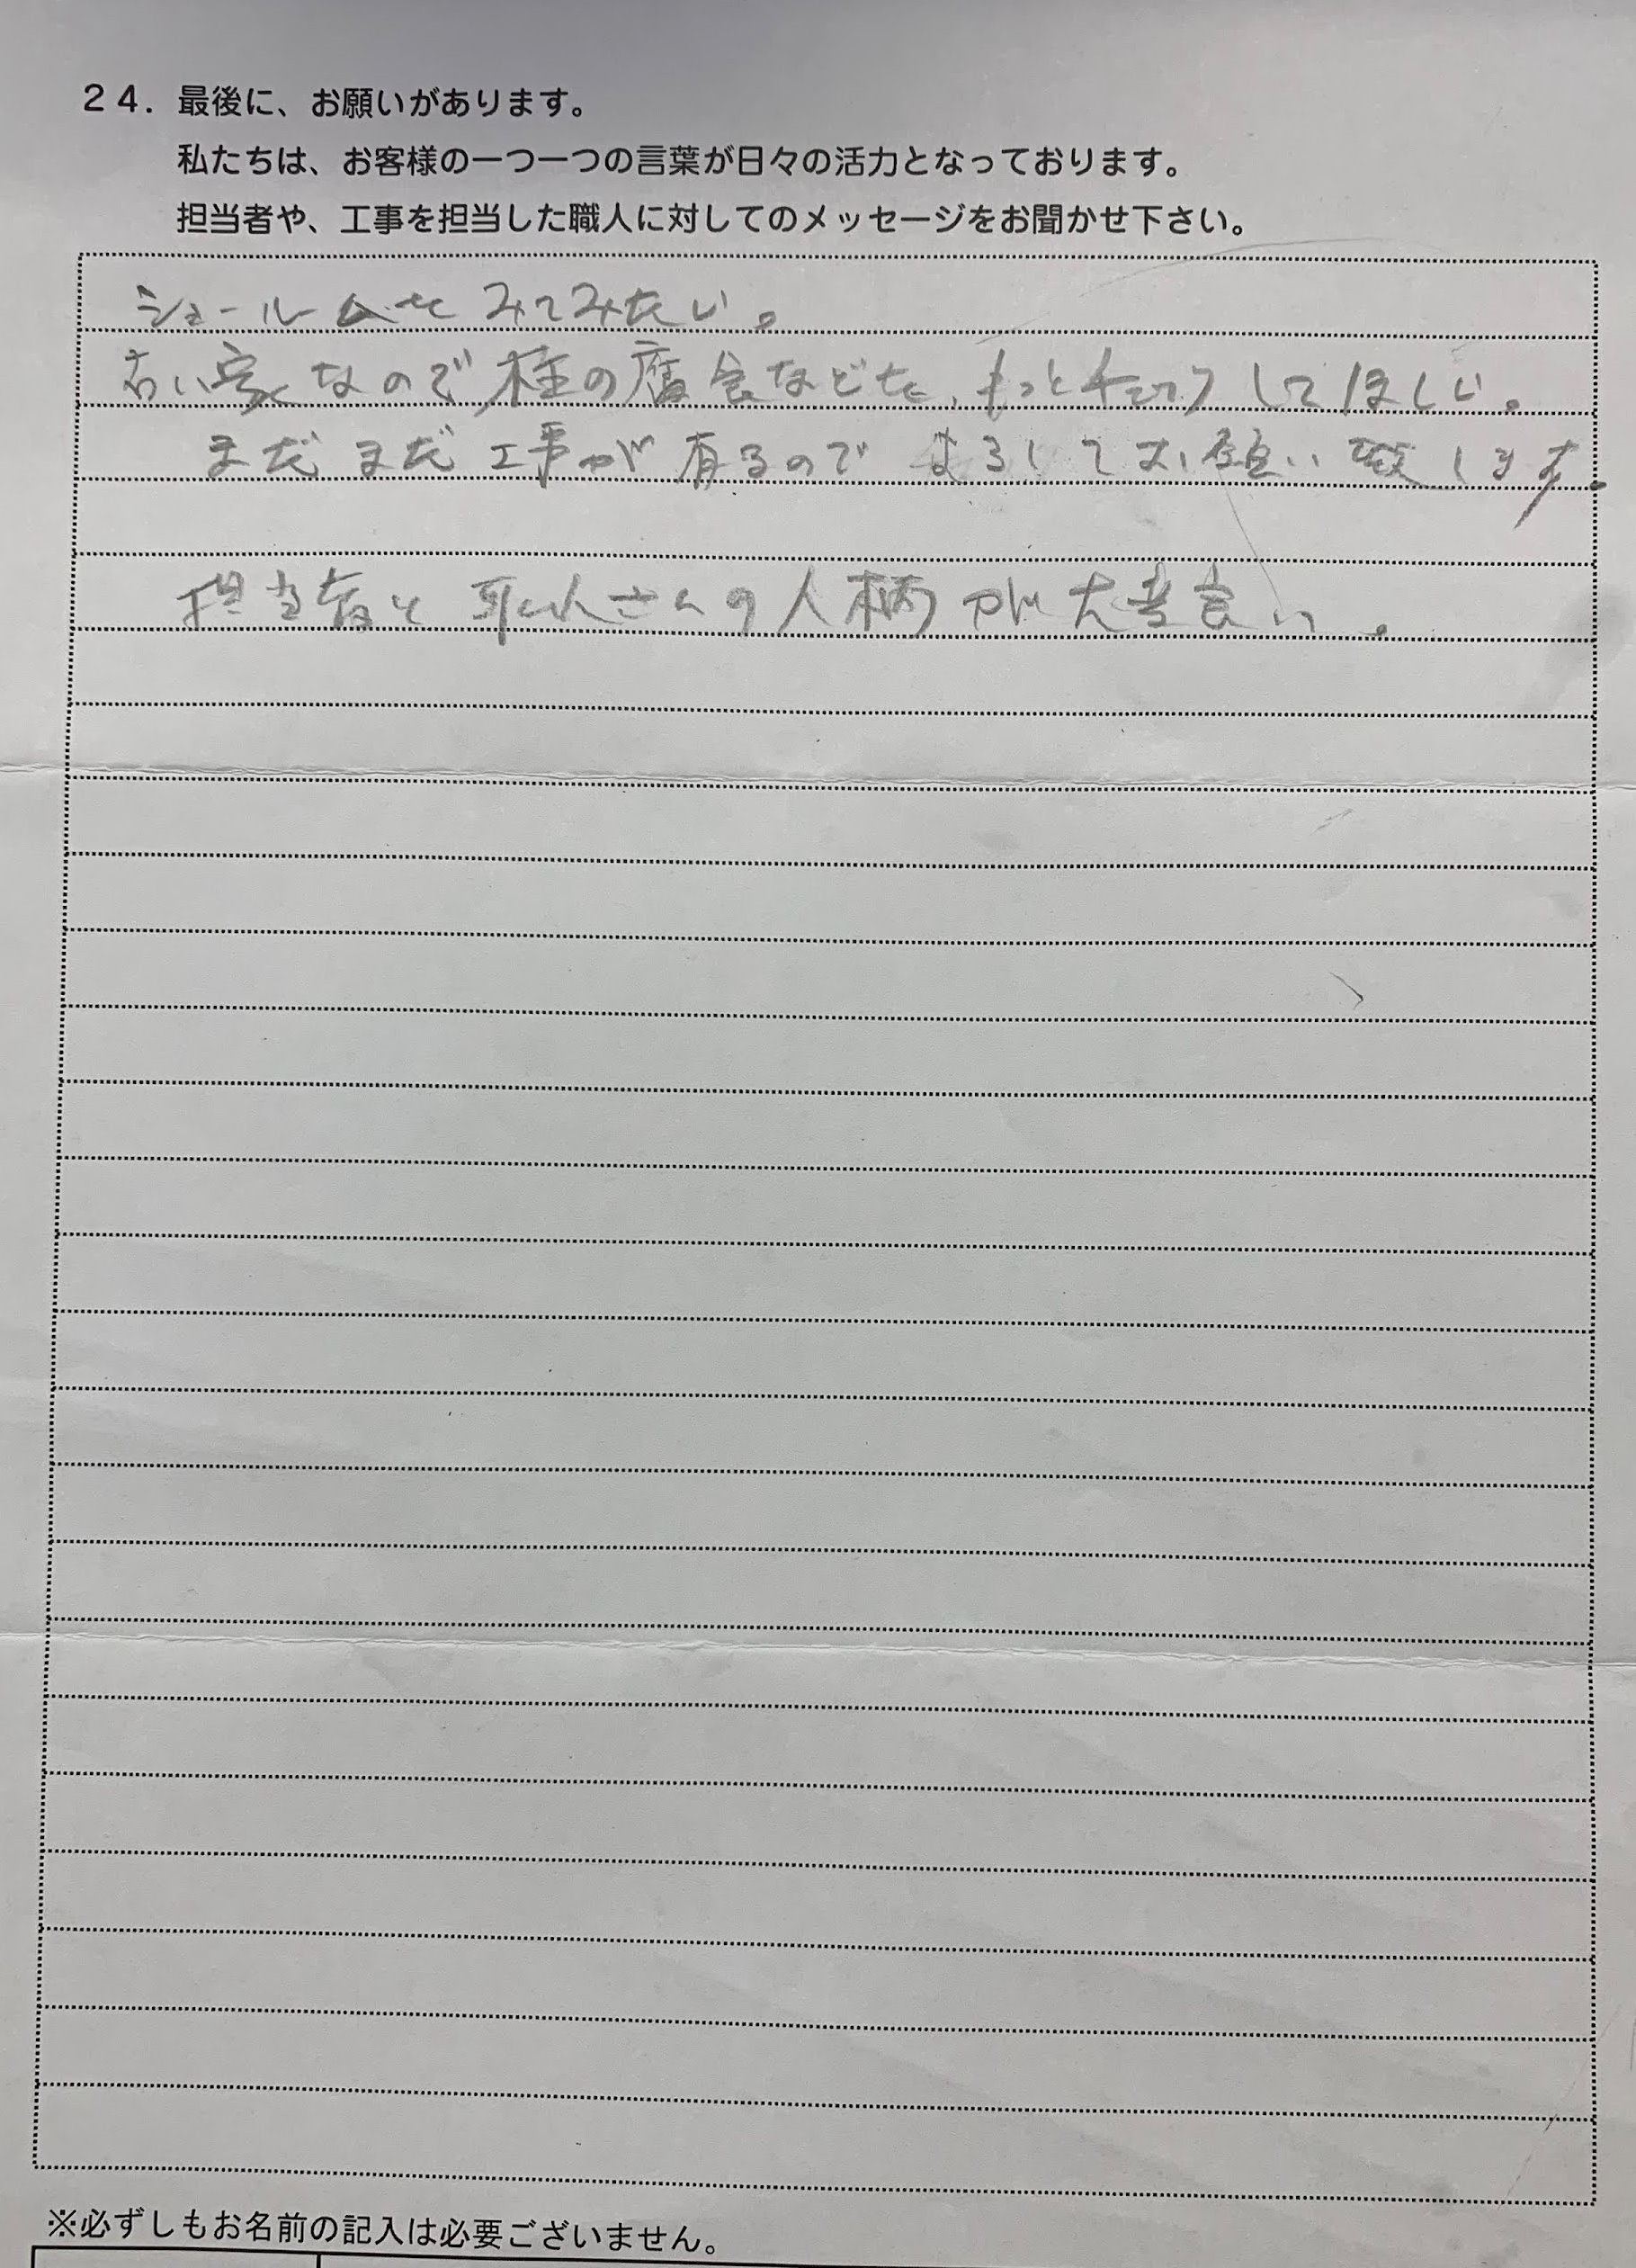 ２４．最後に、お願いがあります。
私たちは、お客様の一つ一つの言葉が日々の活力となっております。
担当者や、工事を担当した職人に対してのメッセージをお聞かせ下さい。
ショールームをみてみたい。
古い家なので柱の腐食などを、もっとチェックしてほしい。
まだまだ工事が有るのでよろしくお願い致します。
担当者と職人さんの人柄が大変良い。
※必ずしもお名前の記入は必要ございません。